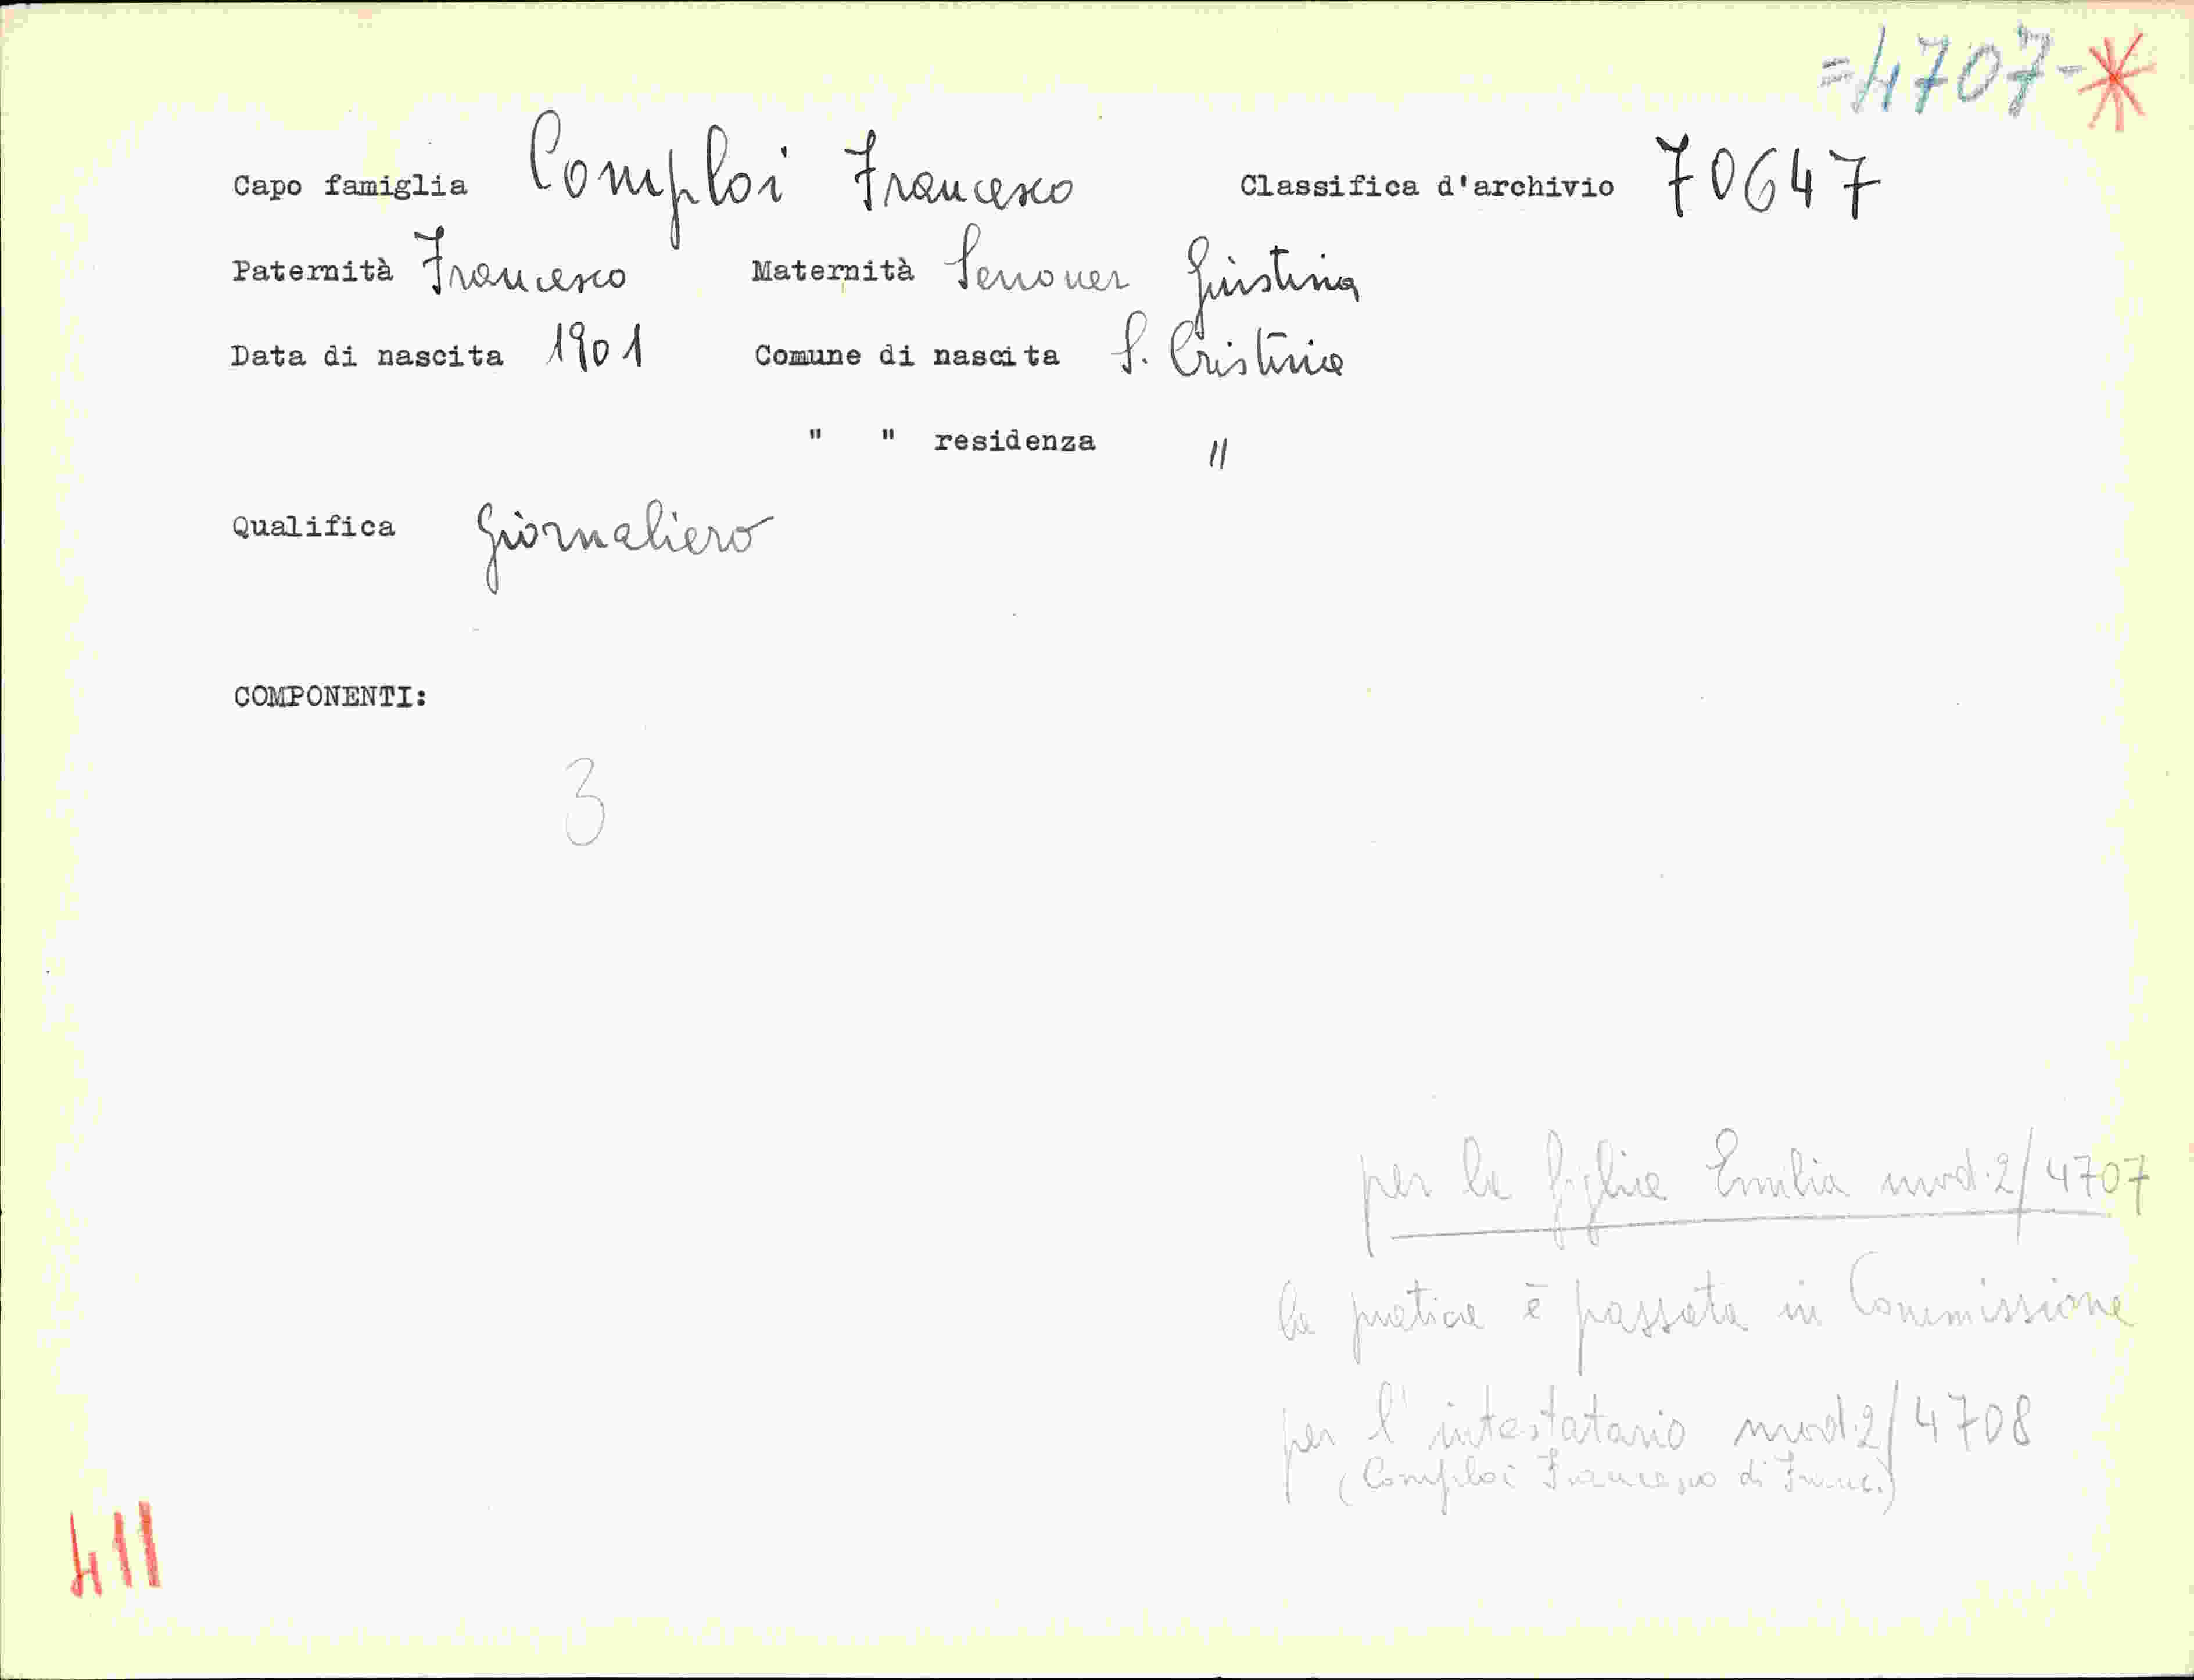 =4707-*
Capo famiglia Comploi Francesco Classifica d'archivio 70647
Paternità Francesco Maternità Senoner Giustina
Data di nascita 1901 Comune di nascita S. Cristina
" " residenza "
Qualifica Giornaliero
COMPONENTI:
3
per la figlia Emilia mod. 2/4707
la pratica è passata in Commissione
per l'intestatario mod. 2/4708
(Comploi Francesco di Franc.)
411